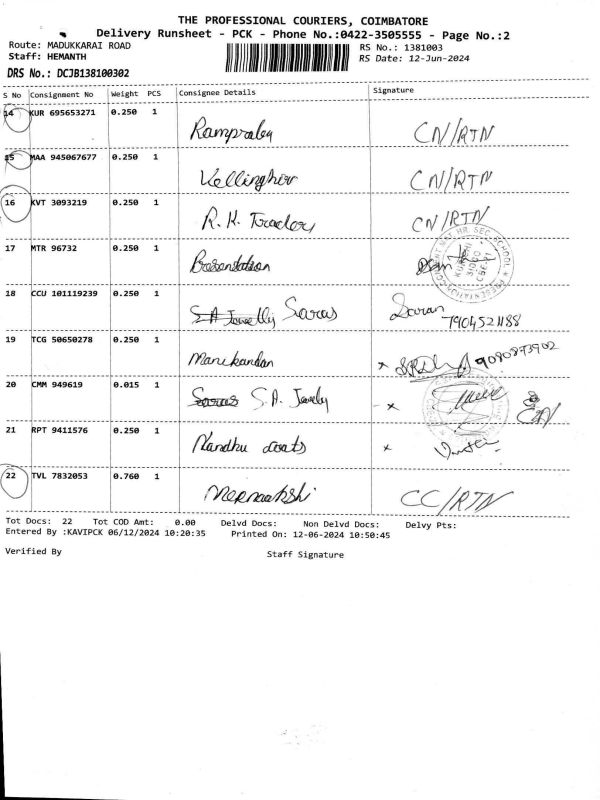 THE PROFESSIONAL COURIERS, COIMBATORE
Delivery Runsheet - PCK - Phone No.:0422-3505555 - Page No.:2
Route: MADUKKARAI ROAD
RS No.: 1381003
Staff: HEMANTH
RS Date: 12-Jun-2024
DRS No.: DCJB138100302
S No Consignment No Weight PCS Consignee Details Signature
14 KUR 695653271 0.250 1
CN/RTN
15 MAA 945067677 0.250 1
CN/RTN
16 KVT 3093219 0.250 1
R.K. Traders CN/RTN
17 MTR 96732 0.250 1
18 CCU 101119239 0.250 1
S A Jewelly Saras Saran
7904521188
19 TCG 50650278 0.250 1
Manikandan 9080873902
20 CMM 949619 0.015 1
Saras S.A. Jewelly
21 RPT 9411576 0.250 1
Nandhu
22 TVL 7832053 0.760 1
Meenaakshi CC/RTN
Tot Docs: 22 Tot COD Amt: 0.00 Delvd Docs: Non Delvd Docs: Delvy Pts:
Entered By :KAVIPCK 06/12/2024 10:20:35 Printed On: 12-06-2024 10:50:45
Verified By Staff Signature